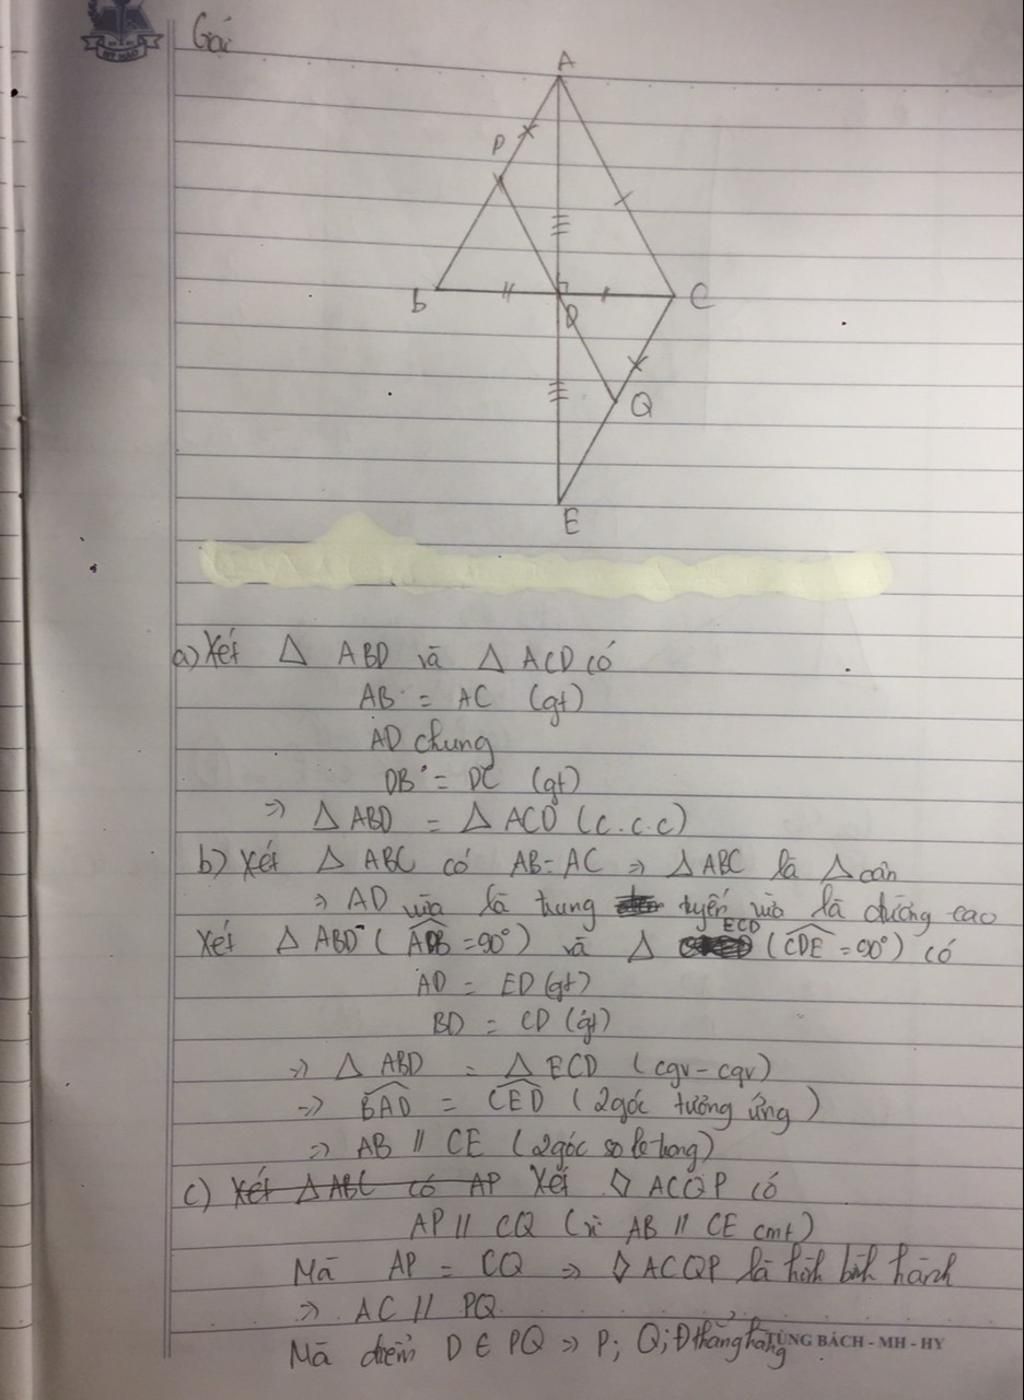 Giải
A
P
B
D
C
Q
E
a) Xét △ ABD và △ ACD có
AB = AC (gt)
AD chung
DB = DC (gt)
=> △ ABD = △ ACD (c.c.c)
b) Xét △ ABC có AB = AC => △ ABC là △ cân
=> AD vừa là trung tuyến vừa là đường cao
Xét △ ABD (ADB = 90°) và △ ECD (CDE = 90°) có
AD = ED (gt)
BD = CD (gt)
=> △ ABD = △ ECD (cgv - cgv)
=> BAD = CED (2 góc tương ứng)
=> AB // CE (2 góc so le trong)
c) Xét △ ABC có AP Xét ◊ ACQP có
AP // CQ (vì AB // CE cmt)
Mà AP = CQ => ◊ ACQP là hình bình hành
=> AC // PQ
Mà điểm D ∈ PQ => P; Q; D thẳng hàng
TÙNG BÁCH - MH - HY